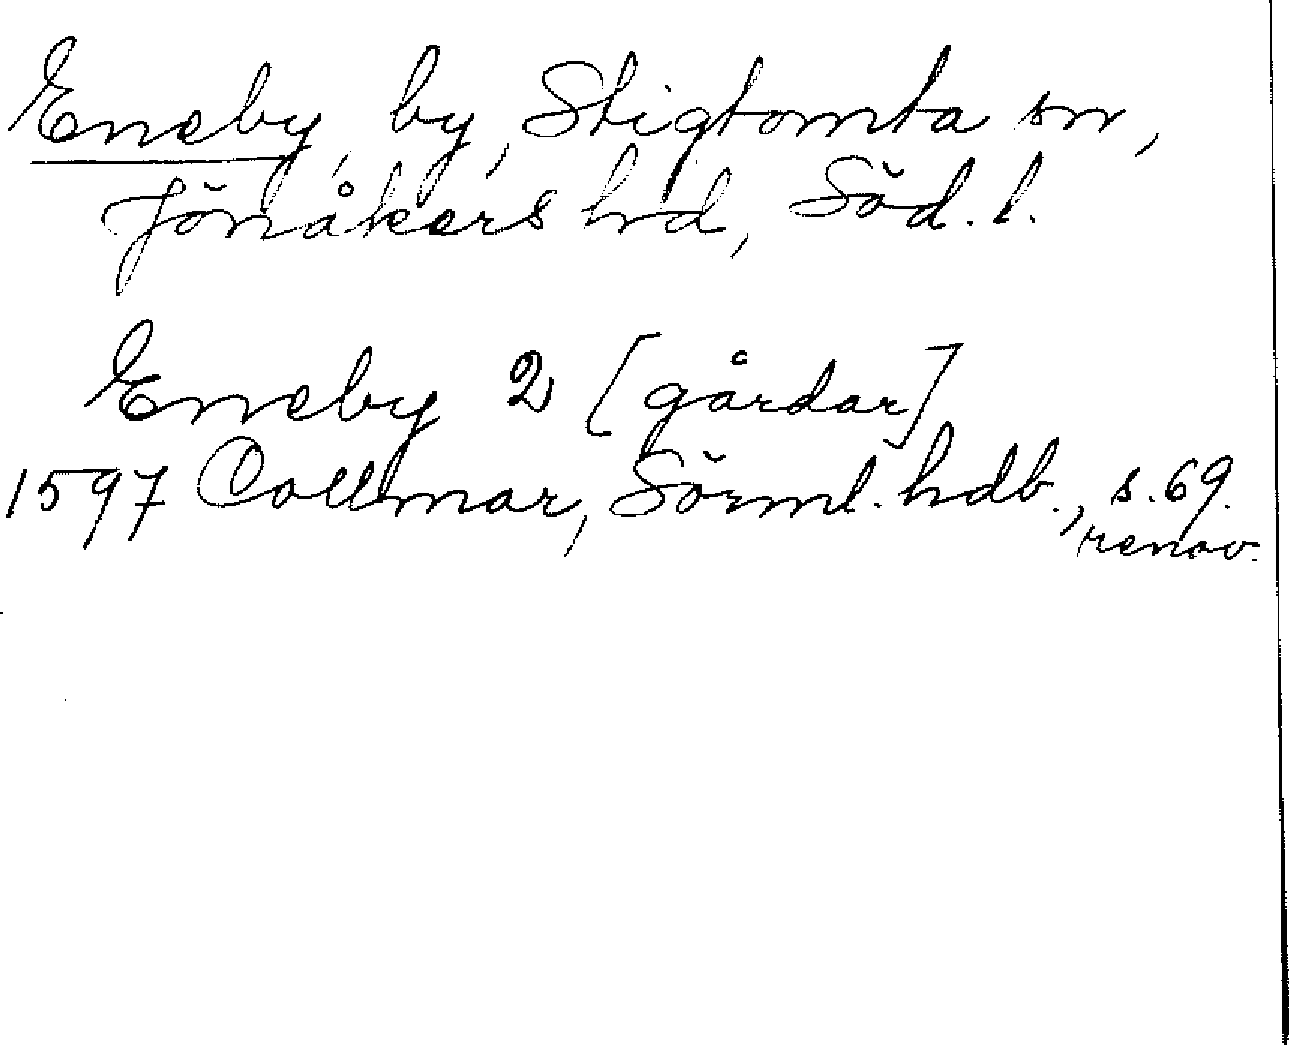 Eneby, by, Stigtomta sn,
Jönåkers hd, Söd. l.
Eneby 2 [gårdar]
1597 Collmar, Sörml. hdb., s. 69.
renov.